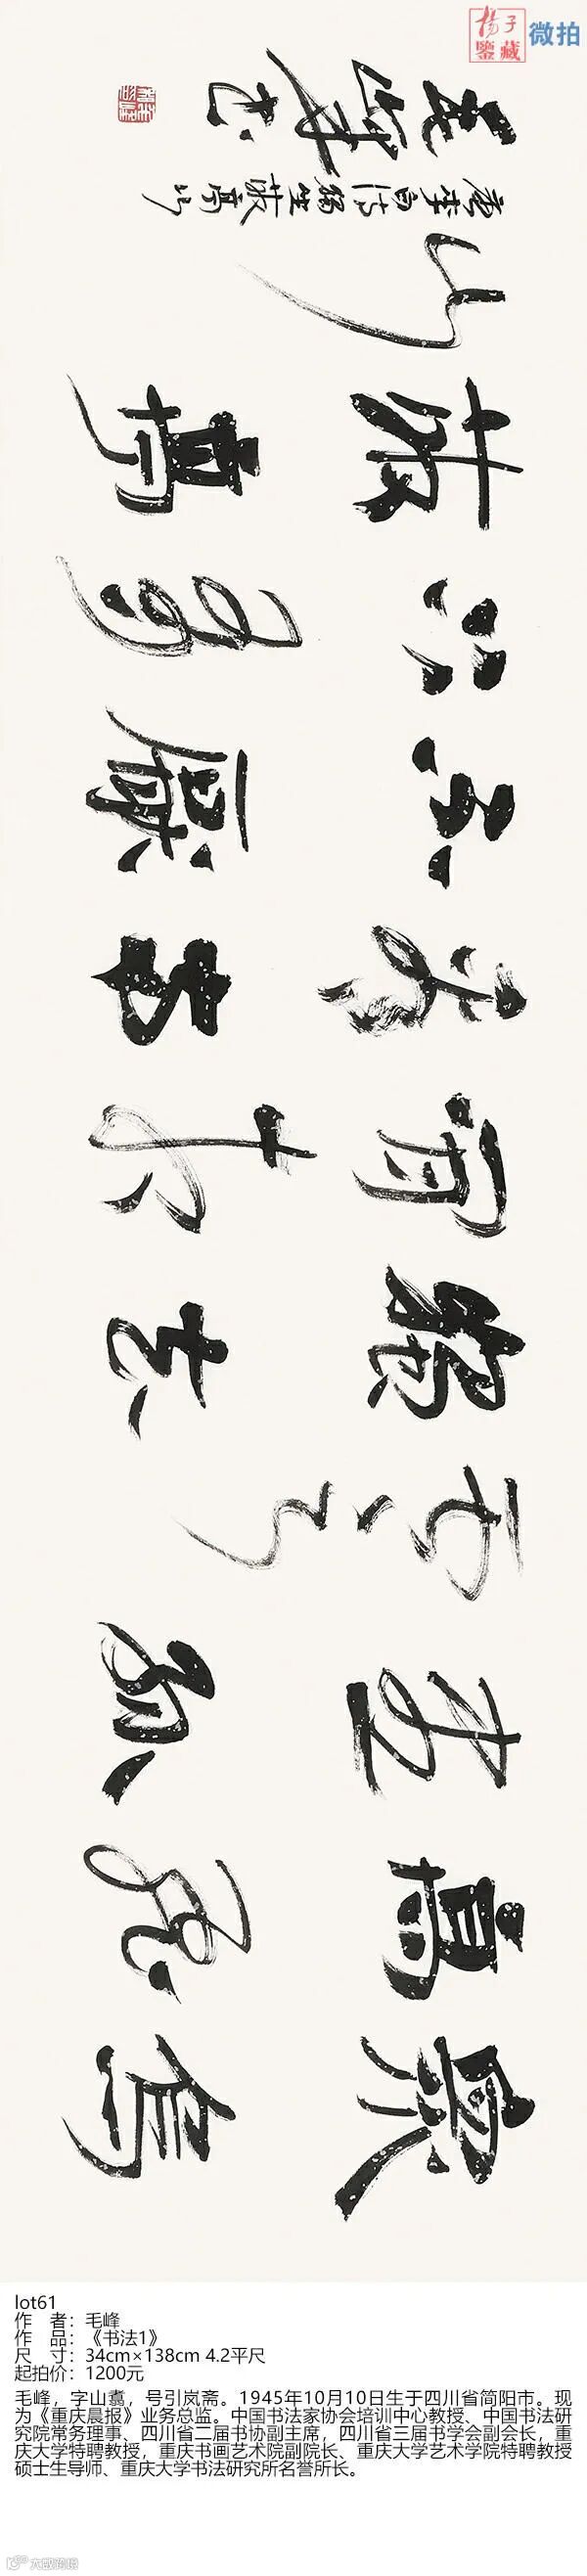 揚子
鑒藏
微拍
眾鳥
高飛
盡孤
雲
獨去
閒相
看兩
不厭
只有
敬亭
山
唐李白詩獨坐敬亭山
lot61
作 者：毛峰
作 品：《书法1》
尺 寸：34cm×138cm 4.2平尺
起拍价：1200元
毛峰，字山翥，号引岚斋。1945年10月10日生于四川省简阳市。现
为《重庆晨报》业务总监。中国书法家协会培训中心教授、中国书法研
究院常务理事、四川省二届书协副主席，四川省三届书学会副会长，重
庆大学特聘教授，重庆书画艺术院副院长、重庆大学艺术学院特聘教授
硕士生导师、重庆大学书法研究所名誉所长。